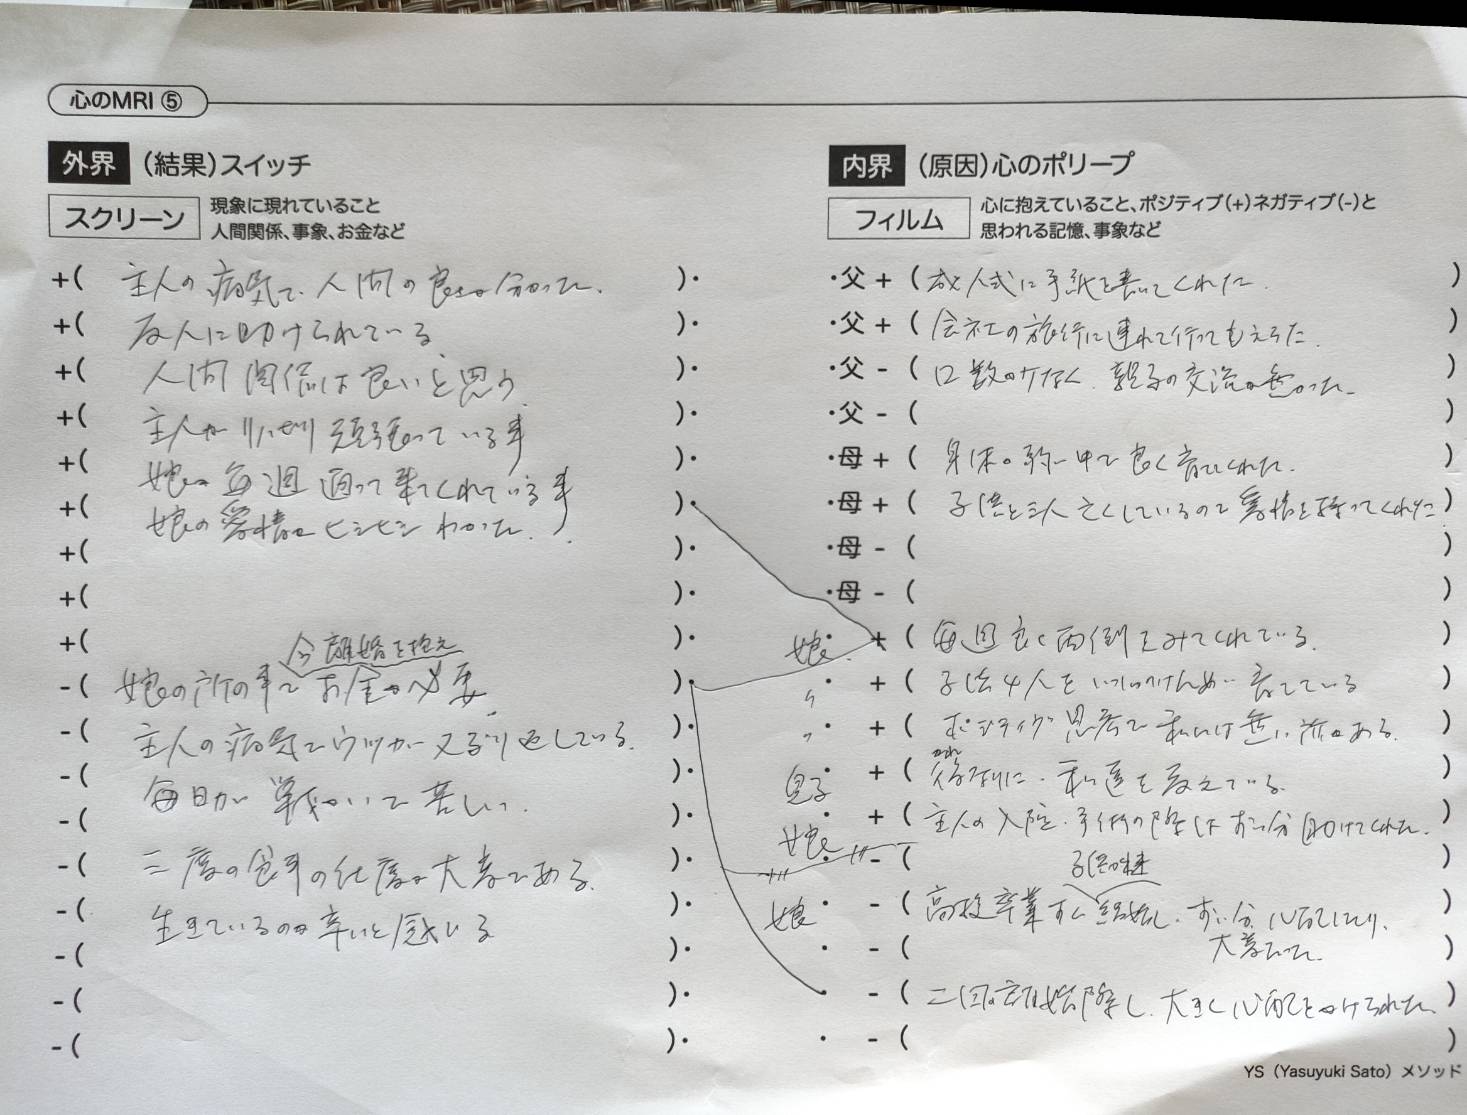 心のMRI ⑤
外界 (結果)スイッチ
スクリーン 現象に現れていること
人間関係、事象、お金など
+( 主人の病気で、人間の良さが分かった。 )・
+( 友人に助けられている。 )・
+( 人間関係は良いと思う。 )・
+( 主人がリハビリ頑張っている事 )・
+( 娘が毎週通って来てくれている事 )・
+( 娘の愛情がヒシヒシわかった。 )・
+( )・
+( )・
+( )・
今離婚を抱え
-( 娘の所の事でお金が必要。 )・
-( 主人の病気でウツがくり返している。 )・
-( 毎日が戦いで苦しい。 )・
-( )・
-( 三度の食事の仕度が大変である。 )・
-( 生きているのが辛いと感じる )・
-( )・
-( )・
-( )・
内界 (原因)心のポリープ
フィルム 心に抱えていること、ポジティブ(+)ネガティブ(-)と
思われる記憶、事象など
・父 + ( 成人式に手紙を書いてくれた。 )
・父 + ( 会社の旅行に連れて行ってもらった。 )
・父 - ( 口数が少なく、親子の交流が無かった。 )
・父 - ( )
・母 + ( 身体の弱い中で良く育ててくれた。 )
・母 + ( 子供を三人亡くしているので愛情を持ってくれた )
・母 - ( )
・母 - ( )
娘・ + ( 毎週良く面倒をみてくれている。 )
〃・ + ( 子供4人をいっしょけんめい育てている )
〃・ + ( ポジティブ思考で私には無い所がある。 )
かれ
息子・ + ( 彼なりに、私達を支えている。 )
・ + ( 主人の入院、手術の際はずい分助けてくれた。 )
娘・ - ( )
娘・ - ( 高校卒業すぐ結婚し、ずい分心配したり、
・ - ( 大変だった。 )
・ - ( 二回の離婚 し、大きく心配をかけられた。 )
・ - ( )
YS（Yasuyuki Sato）メソッド